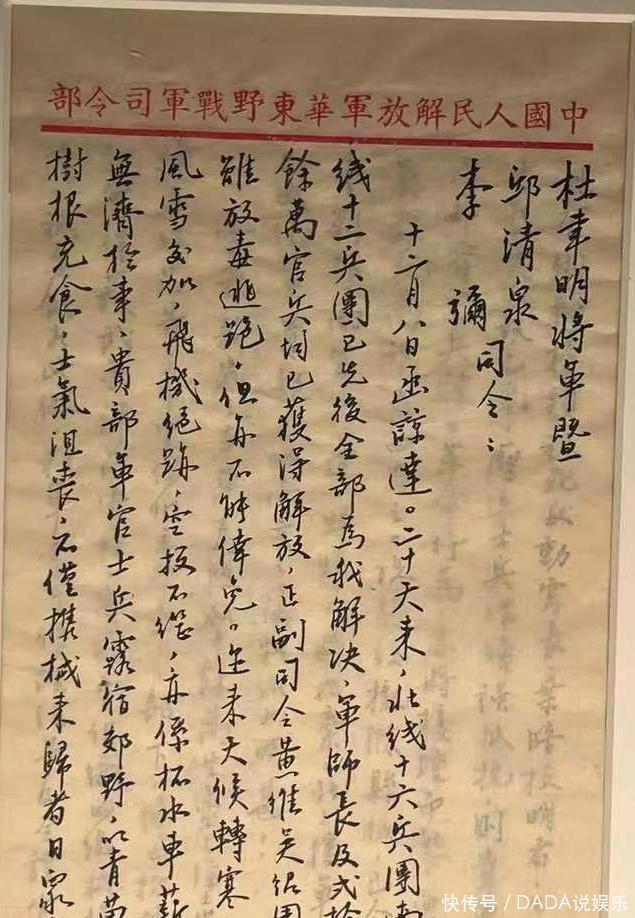 中國人民解放軍華東野戰軍司令部
杜聿明將軍暨
邱清泉
李彌司令：
十二月八日函諒達。二十天来，北线十六兵團南
线十二兵團已先後全部為我解决，軍師長及弍拾
餘萬官兵均已獲得解放，正副司令黄維吴紹周
雖放毒逃跑，但亦不能倖免。近来天候轉寒
風雪交加，飛機絕跡，空投不繼，亦係杯水車薪
無濟於事，貴部軍官士兵露宿郊野，以青苗
樹根充食，士氣沮喪，不僅攜械来歸者日衆
快传号／DADA说娱乐